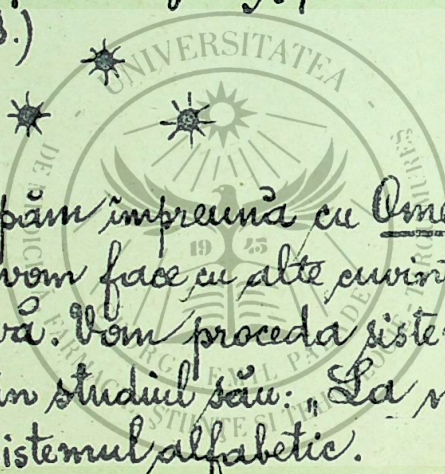 s.)
păm împreună cu Ome
vom face cu alte cuvin
vă. Vom proceda siste
în studiul său: „La n
sistemul alfabetic.
UNIVERSITATEA
DE MEDICINĂ, FARMACIE, ȘTIINȚE ȘI TEHNOLOGIE
GEORGE EMIL PALADE
TÎRGU MUREȘ
19 45